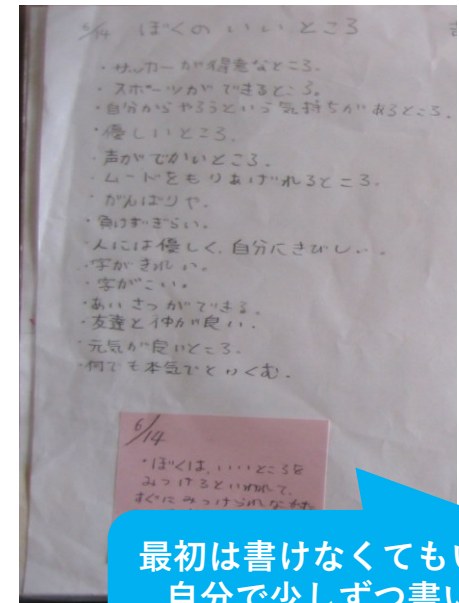 6/14 ぼくのいいところ
・サッカーが得意なところ。
・スポーツができるところ。
・自分からやろうという気持ちが れるところ。
・優しいところ。
・声がでかいところ。
・ムードをもりあげれるところ。
・がんばりや。
・負けずぎらい。
・人には優しく、自分にきびしい。
・字がきれい。
・字がこい。
・あいさつができる。
・友達と仲が良い。
・元気が良いところ。
・何でも本気でとりくむ。
6/14
・ぼくは、いいところを
みつけろといわれて、
すぐにみつけられなかった
最初は書けなくてもい
自分で少しずつ書い